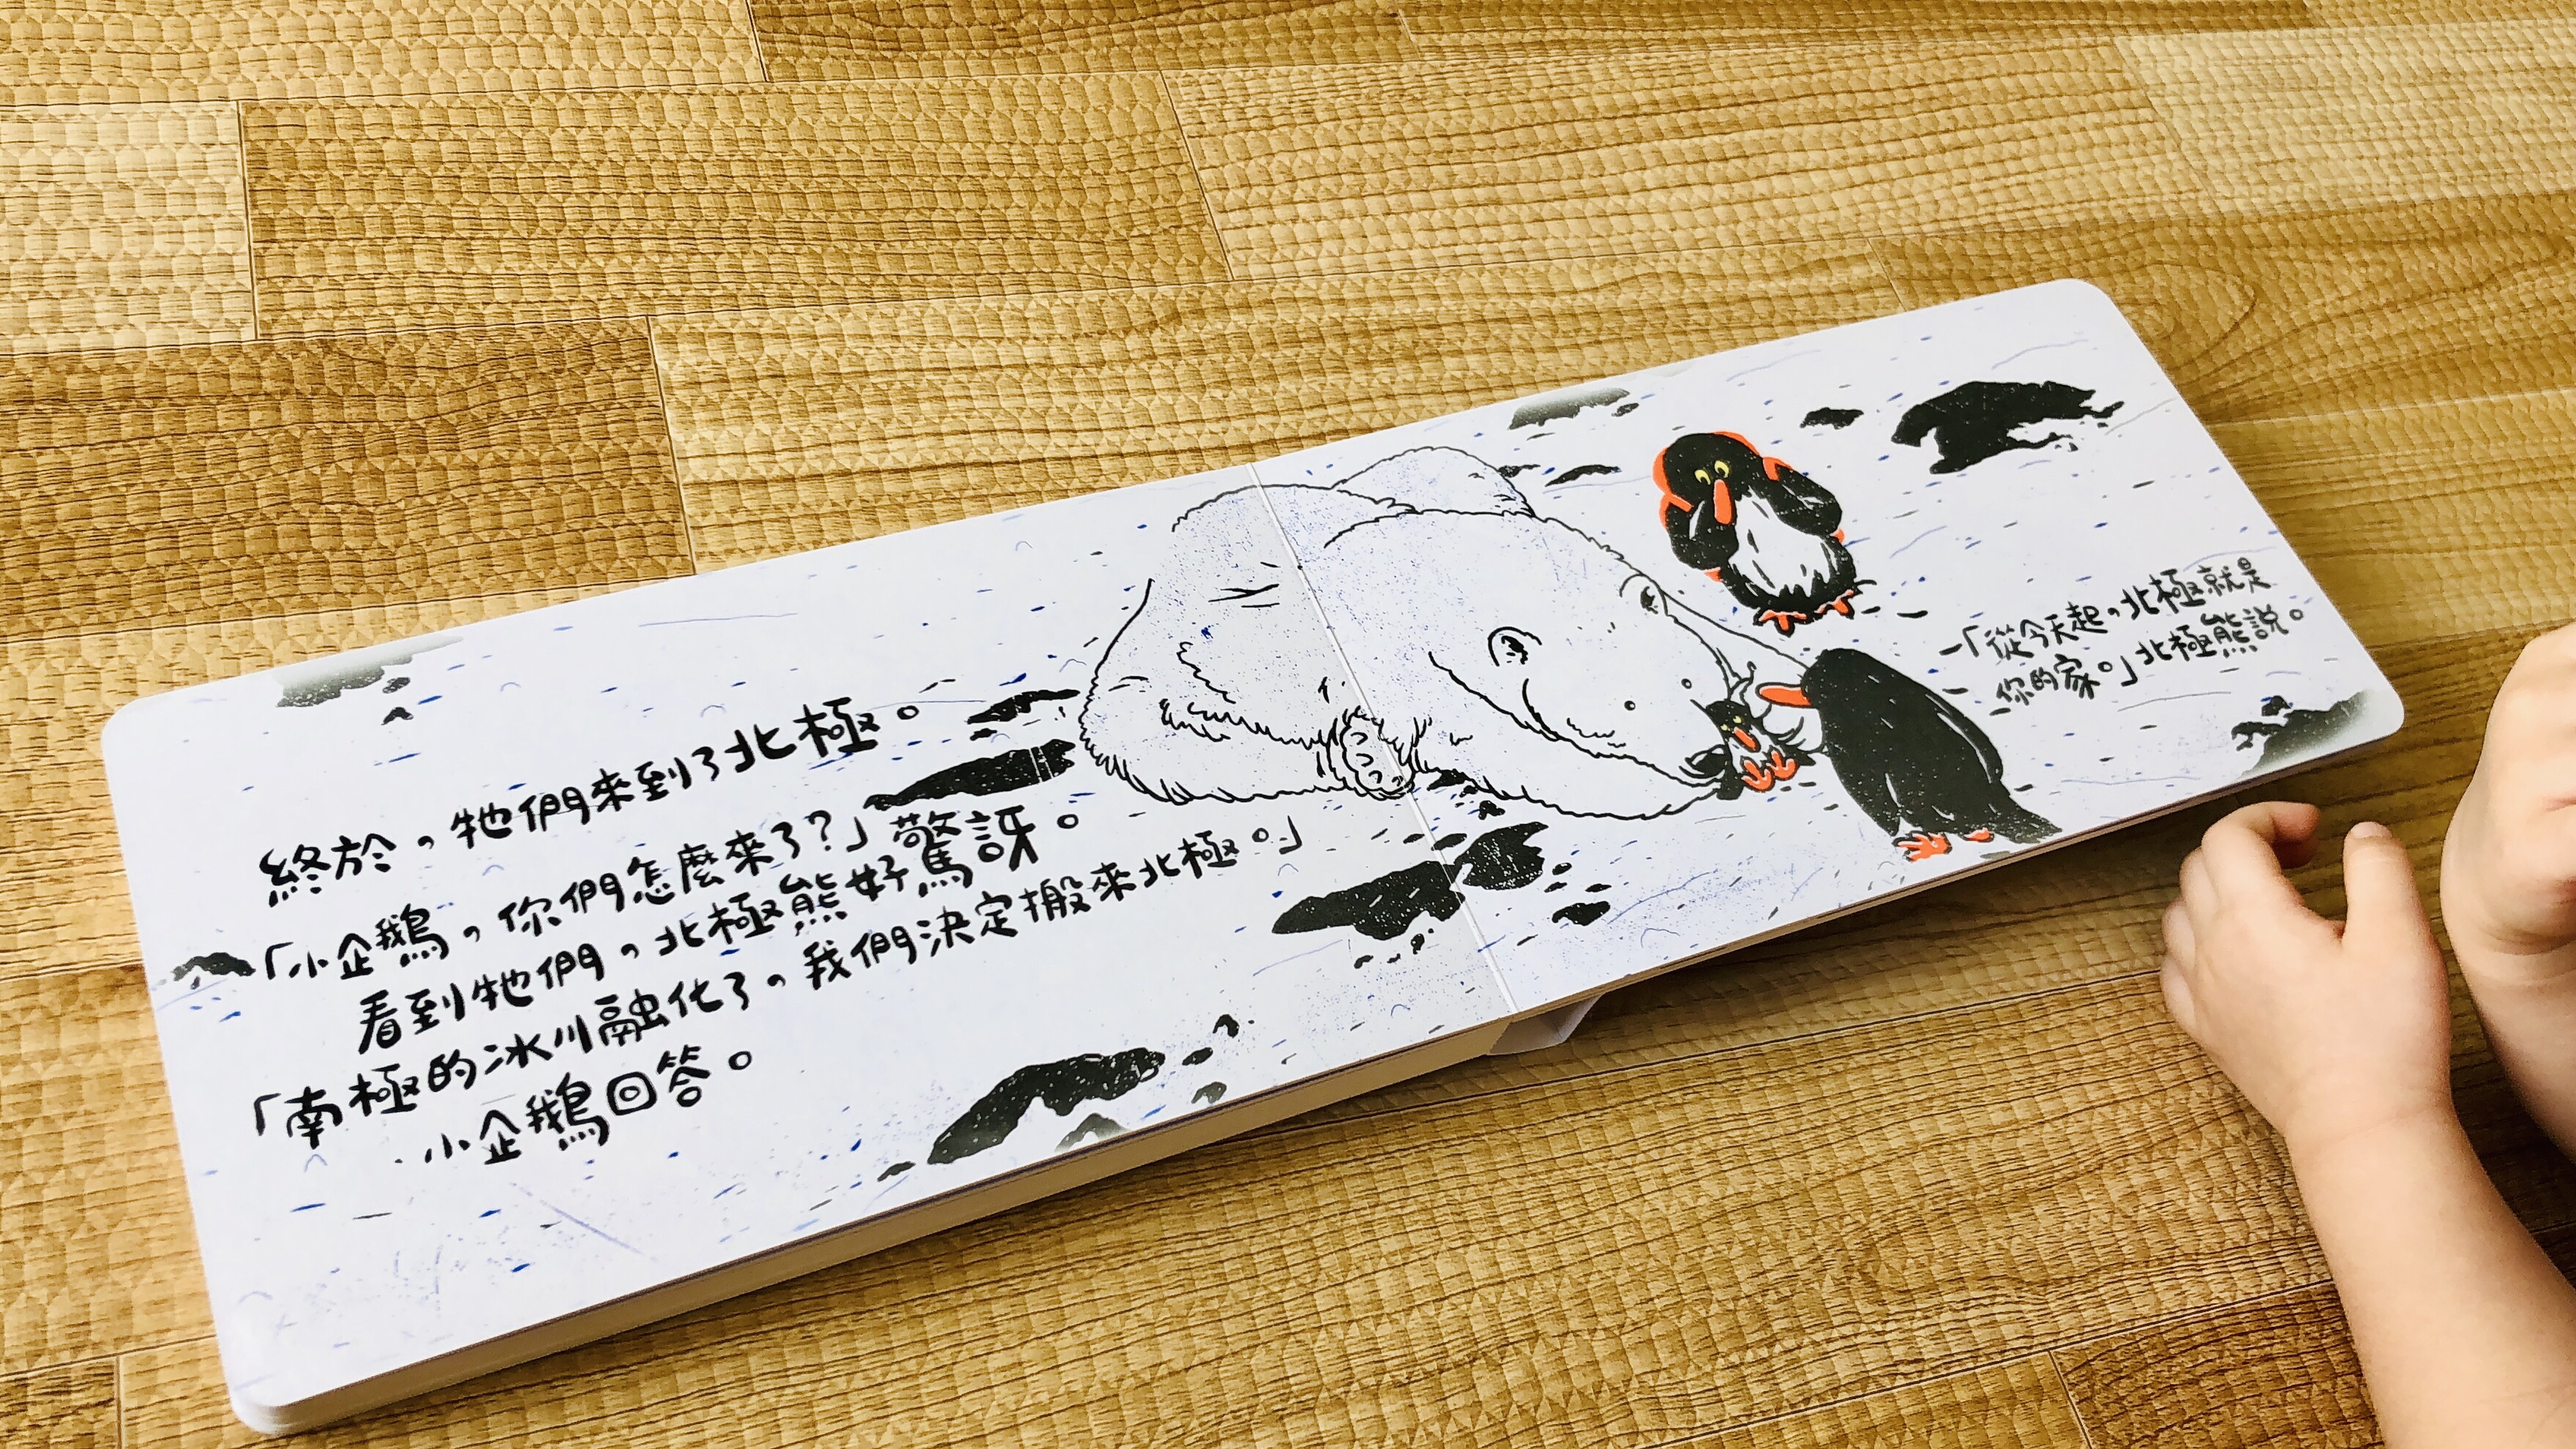 終於，牠們來到了北極。
「小企鵝，你們怎麼來了？」
看到牠們，北極熊好驚訝。
「南極的冰川融化了，我們決定搬來北極。」
小企鵝回答。
「從今天起，北極就是
你的家。」北極熊說。